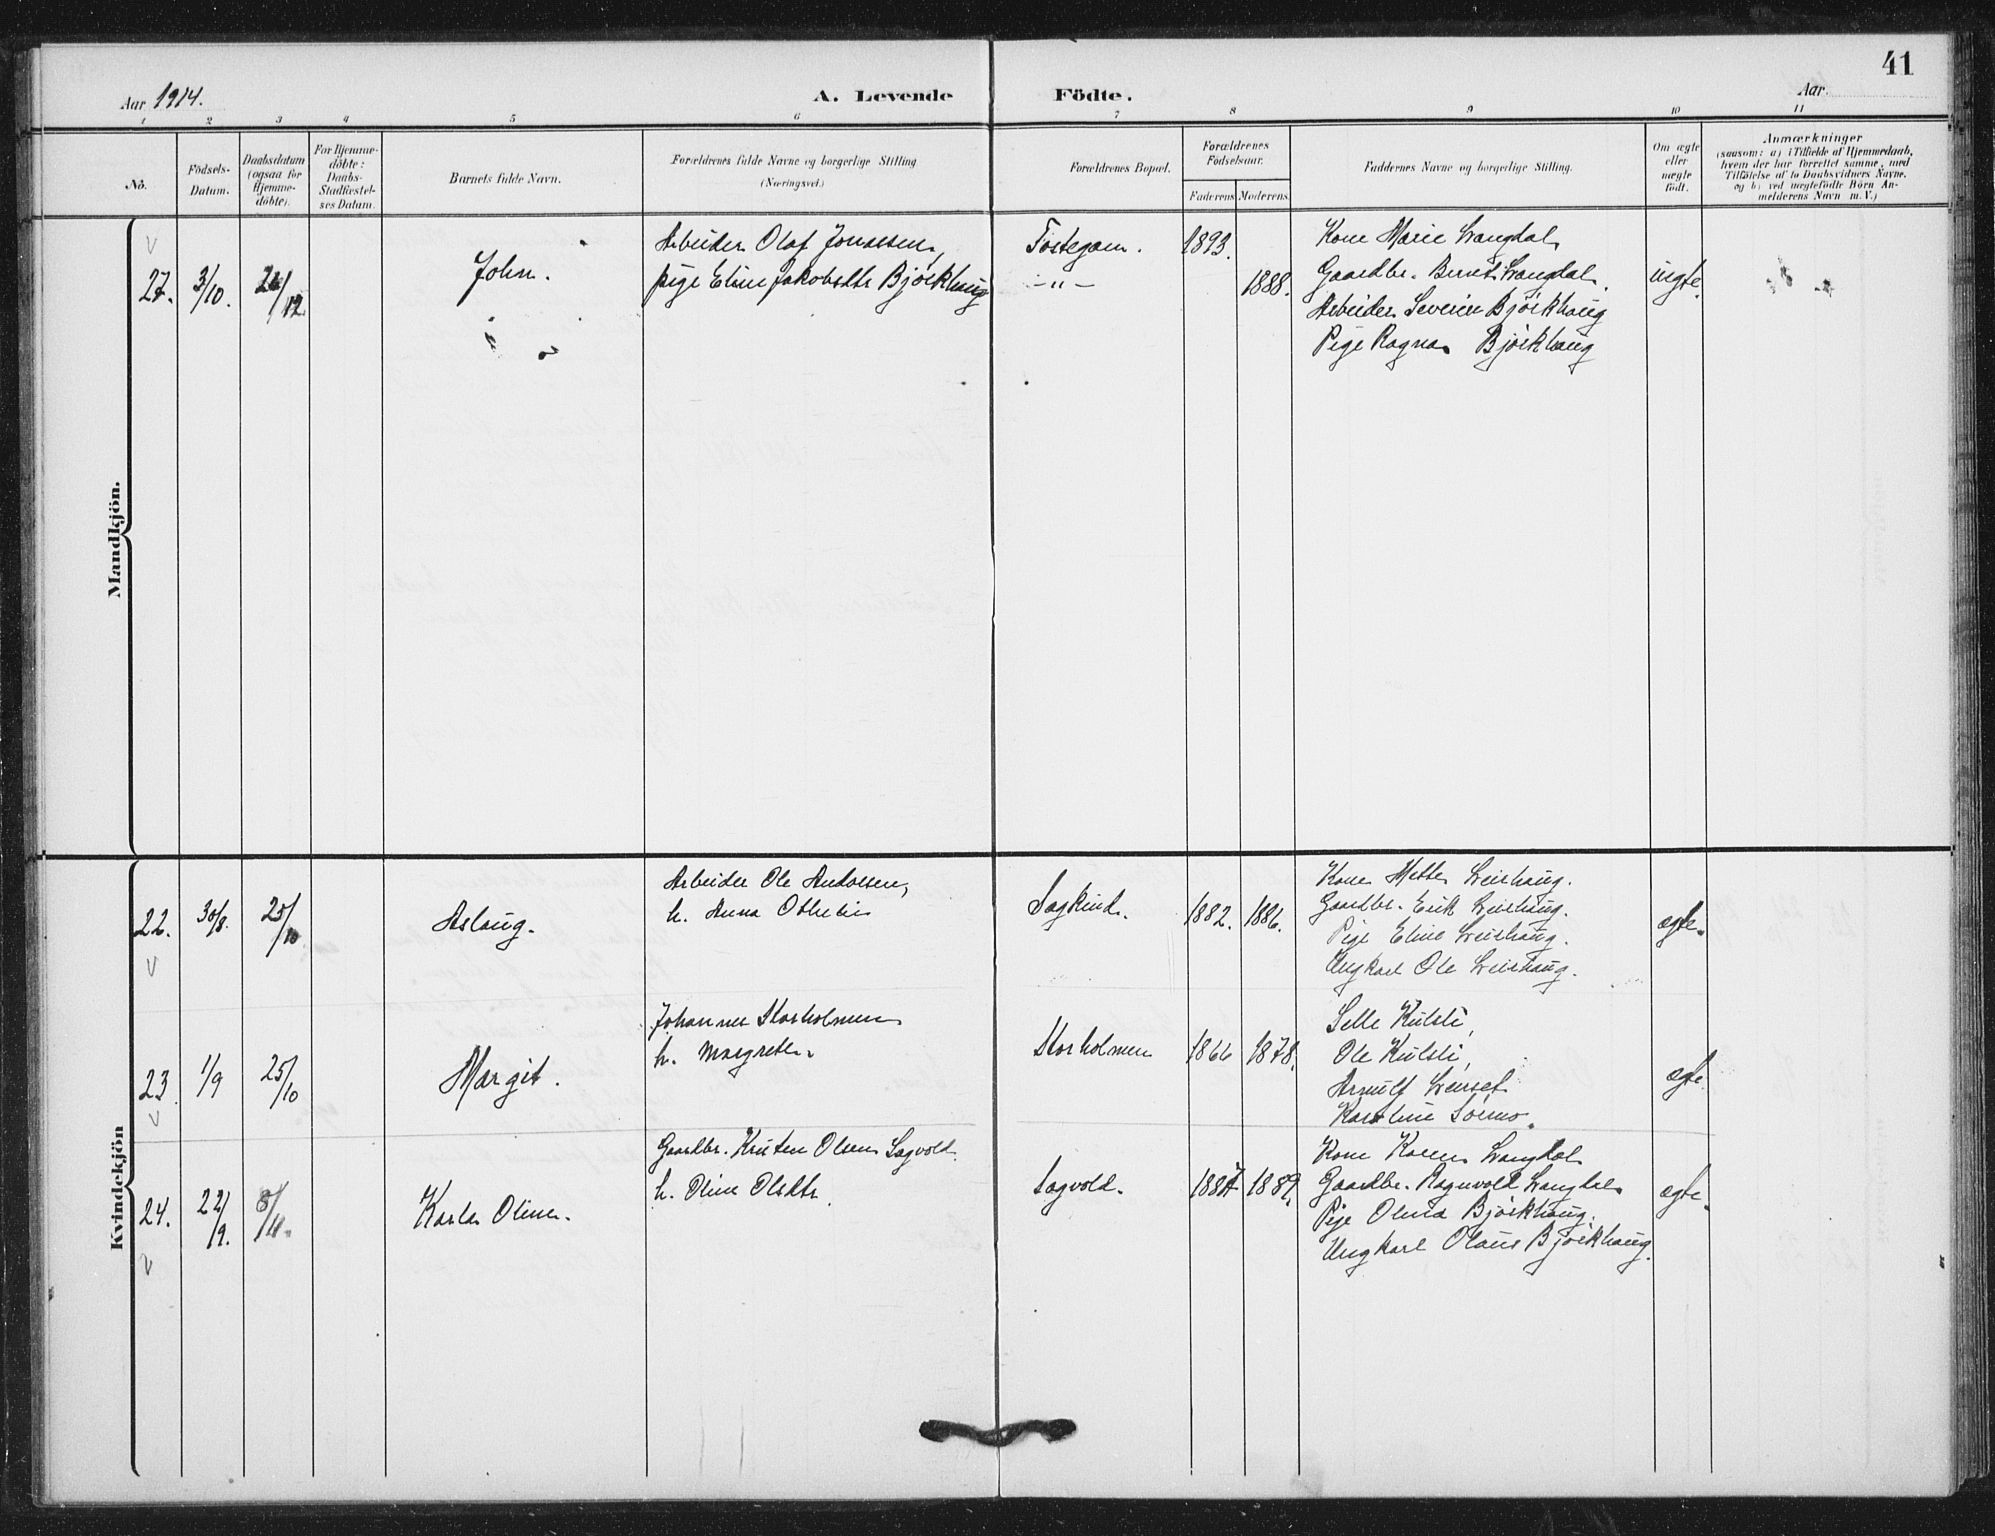 41
Aar 1914.
A. Levende Födte.
Aar.
1 2 3 4 5 6 7 8 9 10 11
No.
Födsels-
Datum.
Daabsdatum
(ogsaa for
Hjemme-
döbte).
For Hjemme-
döbte:
Daabs-
Stadfæstel-
ses Datum.
Barnets fulde Navn.
Forældrenes fulde Navne og borgerlige Stilling
(Næringsvei.)
Forældrenes Bopæl.
Forældrenes
Födselsaar.
Faderens Moderens
Faddernes Navne og borgerlige Stilling.
Om ægte
eller
uægte
födt.
Anmærkninger
(saasom: a) i Tilfælde af Hjemmedaab,
hvem der har forrettet samme, med
Tilföielse af to Daabsvidners Navne,
og b) ved uægtefödte Börn An-
melderens Navn m.V.)
Mandkjön.
27. 3/10. /12.
John.
Arbeider Olaf Jonassen,
pige Eline Jakobsdtr Bjørkhaug
1893.
-"- 1888.
Kone Marie Langdal
Gaardbr. Bernt Langdal.
Arbeider Severin Bjørkhaug
Pige Ragna Bjørkhaug
uægte.
Kvindekjön
22. 30/8. 25/10
Aslaug.
Arbeider Ole Andersen,
h. Anna
1882. 1886.
Kone Mette Leirhaug.
Gaardbr. Erik Leirhaug.
Pige Eline Leirhaug.
Ungkarl Ole Leirhaug.
ægte.
23 1/9 25/10
Margit.
Johannes Storholmen
h. Margrethe
Storholmen 1866 1878.
Kulsli,
Ole Kulsli,
Arnulf Leirset
Karoline Sørmo.
ægte
24. 22/9. 8/11.
Karla Oline.
Gaardbr. Kristen Olsen Sagvold.
h. Oline Olsdtr.
Sagvold. 1887 1889.
Kone Karen Langdal
Gaardbr. Ragnvold Langdal
Pige Olina Bjørkhaug.
Ungkarl Olaus Bjørkhaug.
ægte.